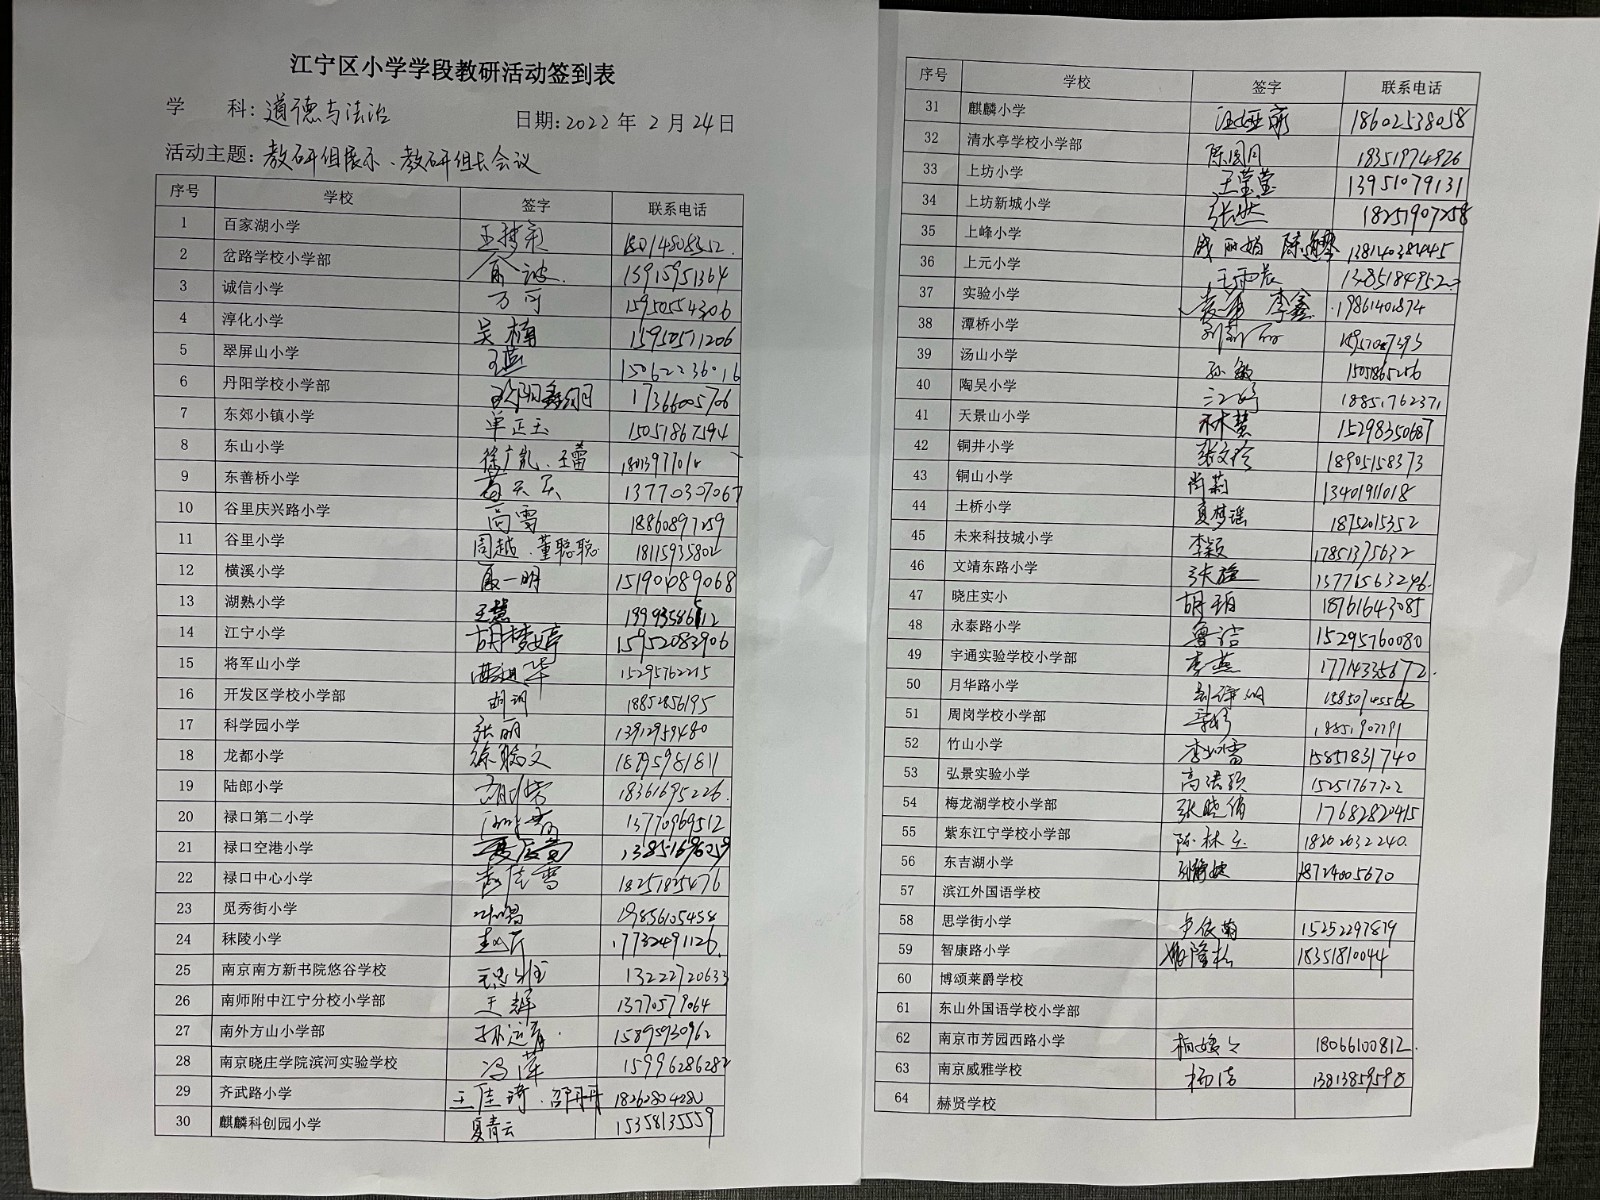 江宁区小学学段教研活动签到表
学 科：道德与法治 日期：2022 年 2 月 24 日
活动主题：教研组展示、教研组长会议
序号 学校 签字 联系电话
1 百家湖小学
2 岔路学校小学部 俞波 13915951364
3 诚信小学 万可 15950554306
4 淳化小学 吴楠 15950571206
5 翠屏山小学 王燕 15062236016
6 丹阳学校小学部 17366005706
7 东郊小镇小学 单正玉 15051867594
8 东山小学 王蕾
9 东善桥小学 13770307067
10 谷里庆兴路小学 高雪 18860897259
11 谷里小学 周越、董聪聪 18115935802
12 横溪小学 15190689068
13 湖熟小学 王慧
14 江宁小学 胡梦婷 15952083906
15 将军山小学 15295762215
16 开发区学校小学部 胡玥 18852856195
17 科学园小学 张丽 13912959480
18 龙都小学 18795981811
19 陆郎小学 18361695226
20 禄口第二小学 13770969512
21 禄口空港小学
22 禄口中心小学 18251825476
23 觅秀街小学 19856105458
24 秣陵小学 17732491126
25 南京南方新书院悠谷学校 13222720633
26 南师附中江宁分校小学部 王辉 13770579064
27 南外方山小学部 孙运有 15895930962
28 南京晓庄学院滨河实验学校 冯萍 15996286282
29 齐武路小学 王佳琦、邵丹丹 18262804280
30 麒麟科创园小学 夏青云 15358135559
序号 学校 签字 联系电话
31 麒麟小学 18602538058
32 清水亭学校小学部 陈圆月 18351974926
33 上坊小学 王莹莹 13951079131
34 上坊新城小学 张燃 18251907258
35 上峰小学 成丽娟
36 上元小学 王雨辰
37 实验小学 李鑫 19861401874
38 潭桥小学
39 汤山小学 孙敏
40 陶吴小学 18851762371
41 天景山小学 林慧 15298350687
42 铜井小学 张文珍 18905158373
43 铜山小学 尚莉 13401911018
44 土桥小学 夏梦瑶 18752015352
45 未来科技城小学 李颖 17851375632
46 文靖东路小学 13771563246
47 晓庄实小 胡玥 18761643085
48 永泰路小学 鲁洁 15295760080
49 宇通实验学校小学部 李燕 17714335672
50 月华路小学
51 周岗学校小学部 18851907791
52 竹山小学 李如雪 15851831740
53 弘景实验小学 15251767702
54 梅龙湖学校小学部 张晓倩 17682820415
55 紫东江宁学校小学部 陈林玉 18202632240
56 东吉湖小学 18724005670
57 滨江外国语学校
58 思学街小学 卢依茜 15252297879
59 智康路小学 18351810044
60 博颂莱爵学校
61 东山外国语学校小学部
62 南京市芳园西路小学 18066100812
63 南京威雅学校 杨洁 13813859598
64 赫贤学校